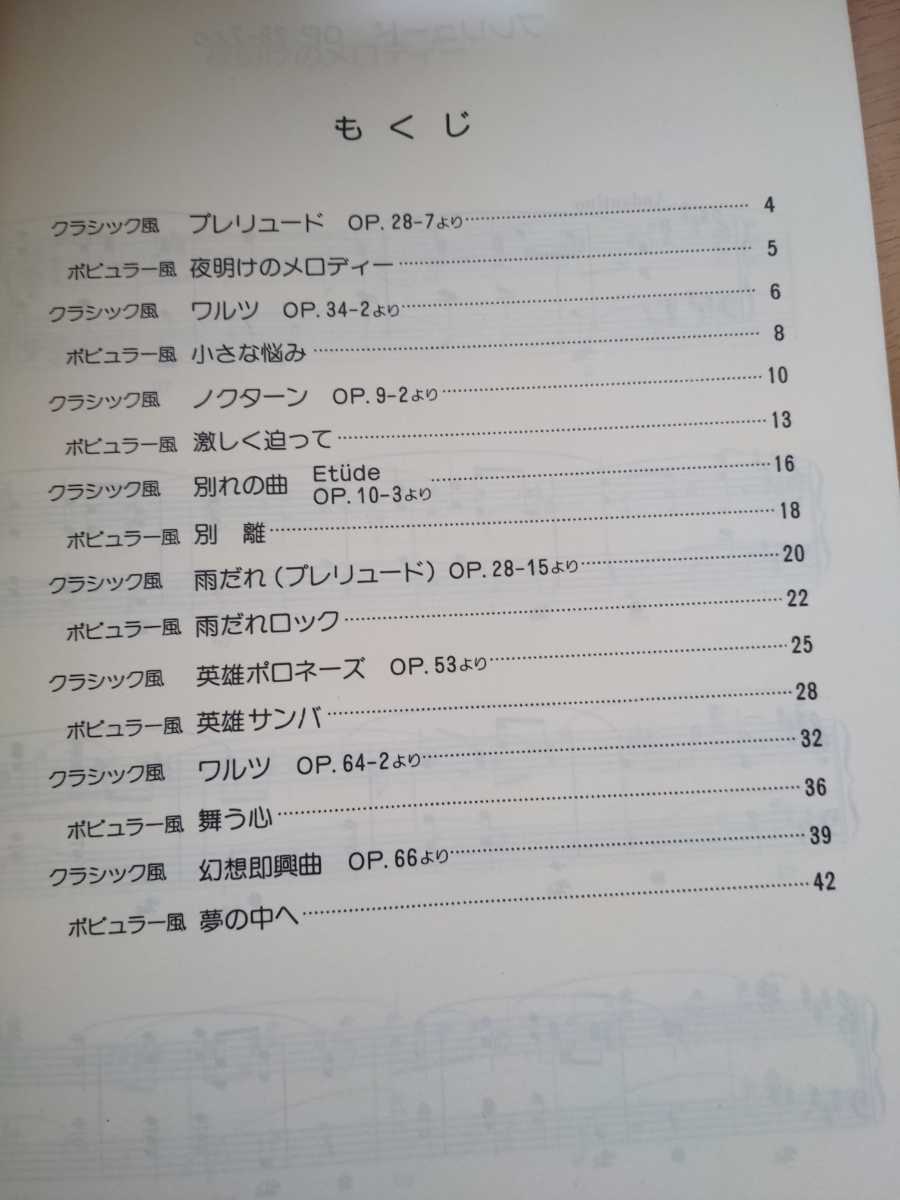 もくじ
クラシック風 プレリュード OP.28-7より 4
ポピュラー風 夜明けのメロディー 5
クラシック風 ワルツ OP.34-2より 6
ポピュラー風 小さな悩み 8
クラシック風 ノクターン OP.9-2より 10
ポピュラー風 激しく迫って 13
クラシック風 別れの曲 Etüde OP.10-3より 16
ポピュラー風 別 離 18
クラシック風 雨だれ(プレリュード) OP.28-15より 20
ポピュラー風 雨だれロック 22
クラシック風 英雄ポロネーズ OP.53より 25
ポピュラー風 英雄サンバ 28
クラシック風 ワルツ OP.64-2より 32
ポピュラー風 舞う心 36
クラシック風 幻想即興曲 OP.66より 39
ポピュラー風 夢の中へ 42